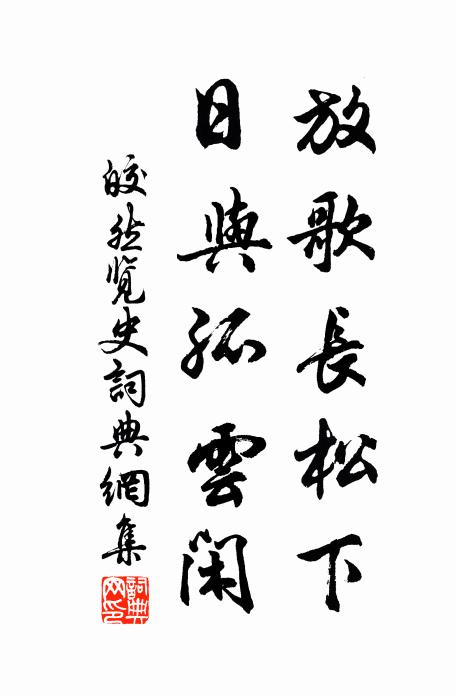 放歌長松下
日與孤雲閑
皎然覽史詞典網集
詞典網印